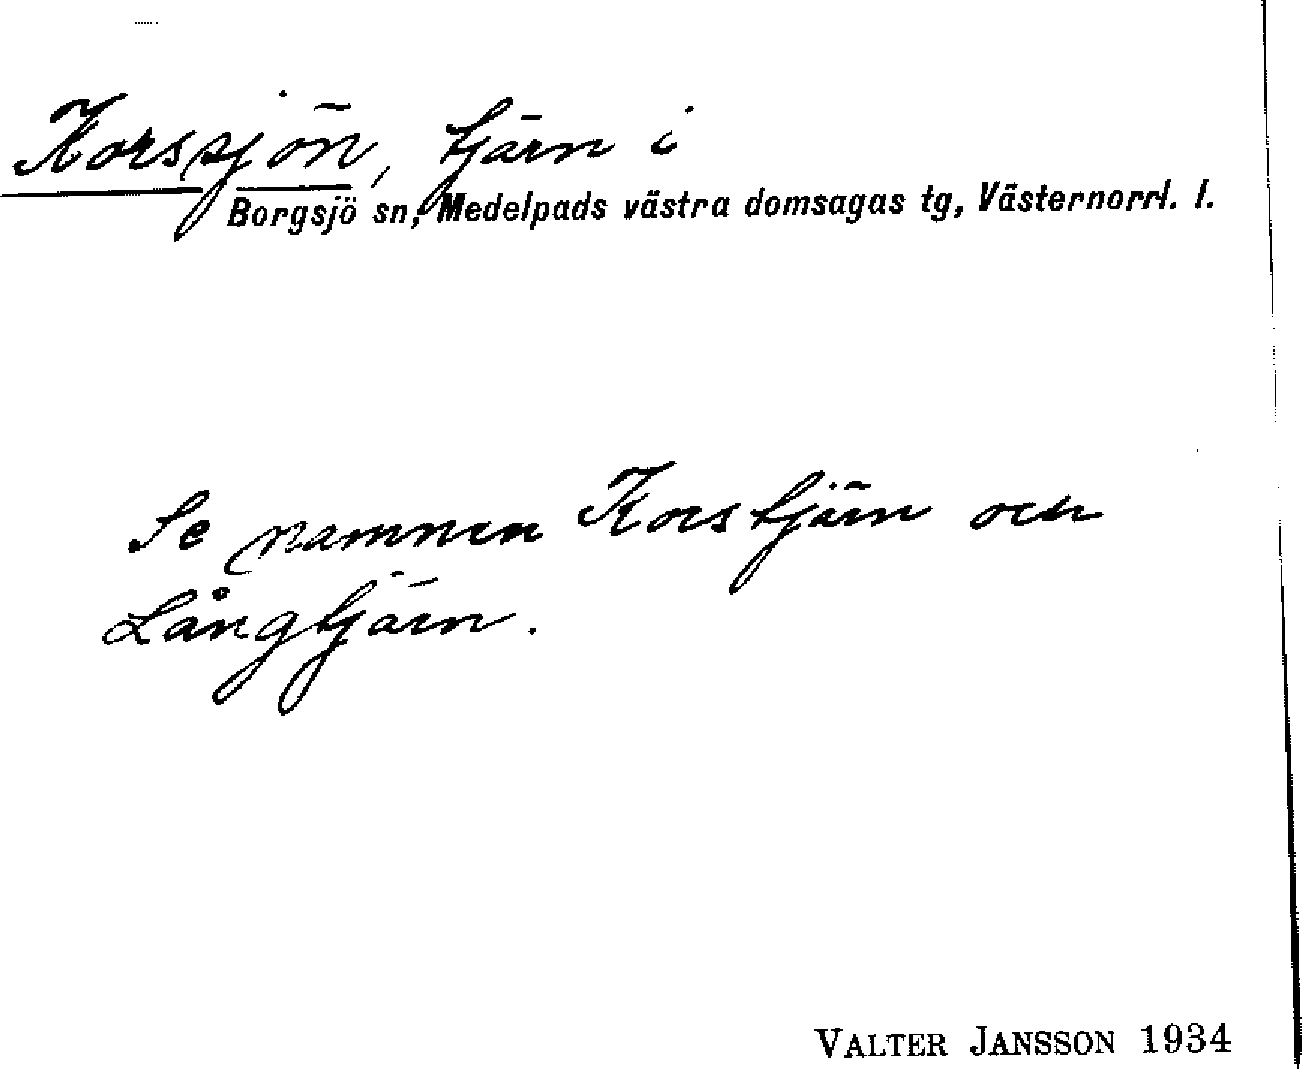 Korssjön, tjärn i
Borgsjö sn, Medelpads västra domsagas tg, Västernorrl. l.
Se namnen Korstjärn och
Långtjärn.
VALTER JANSSON 1934